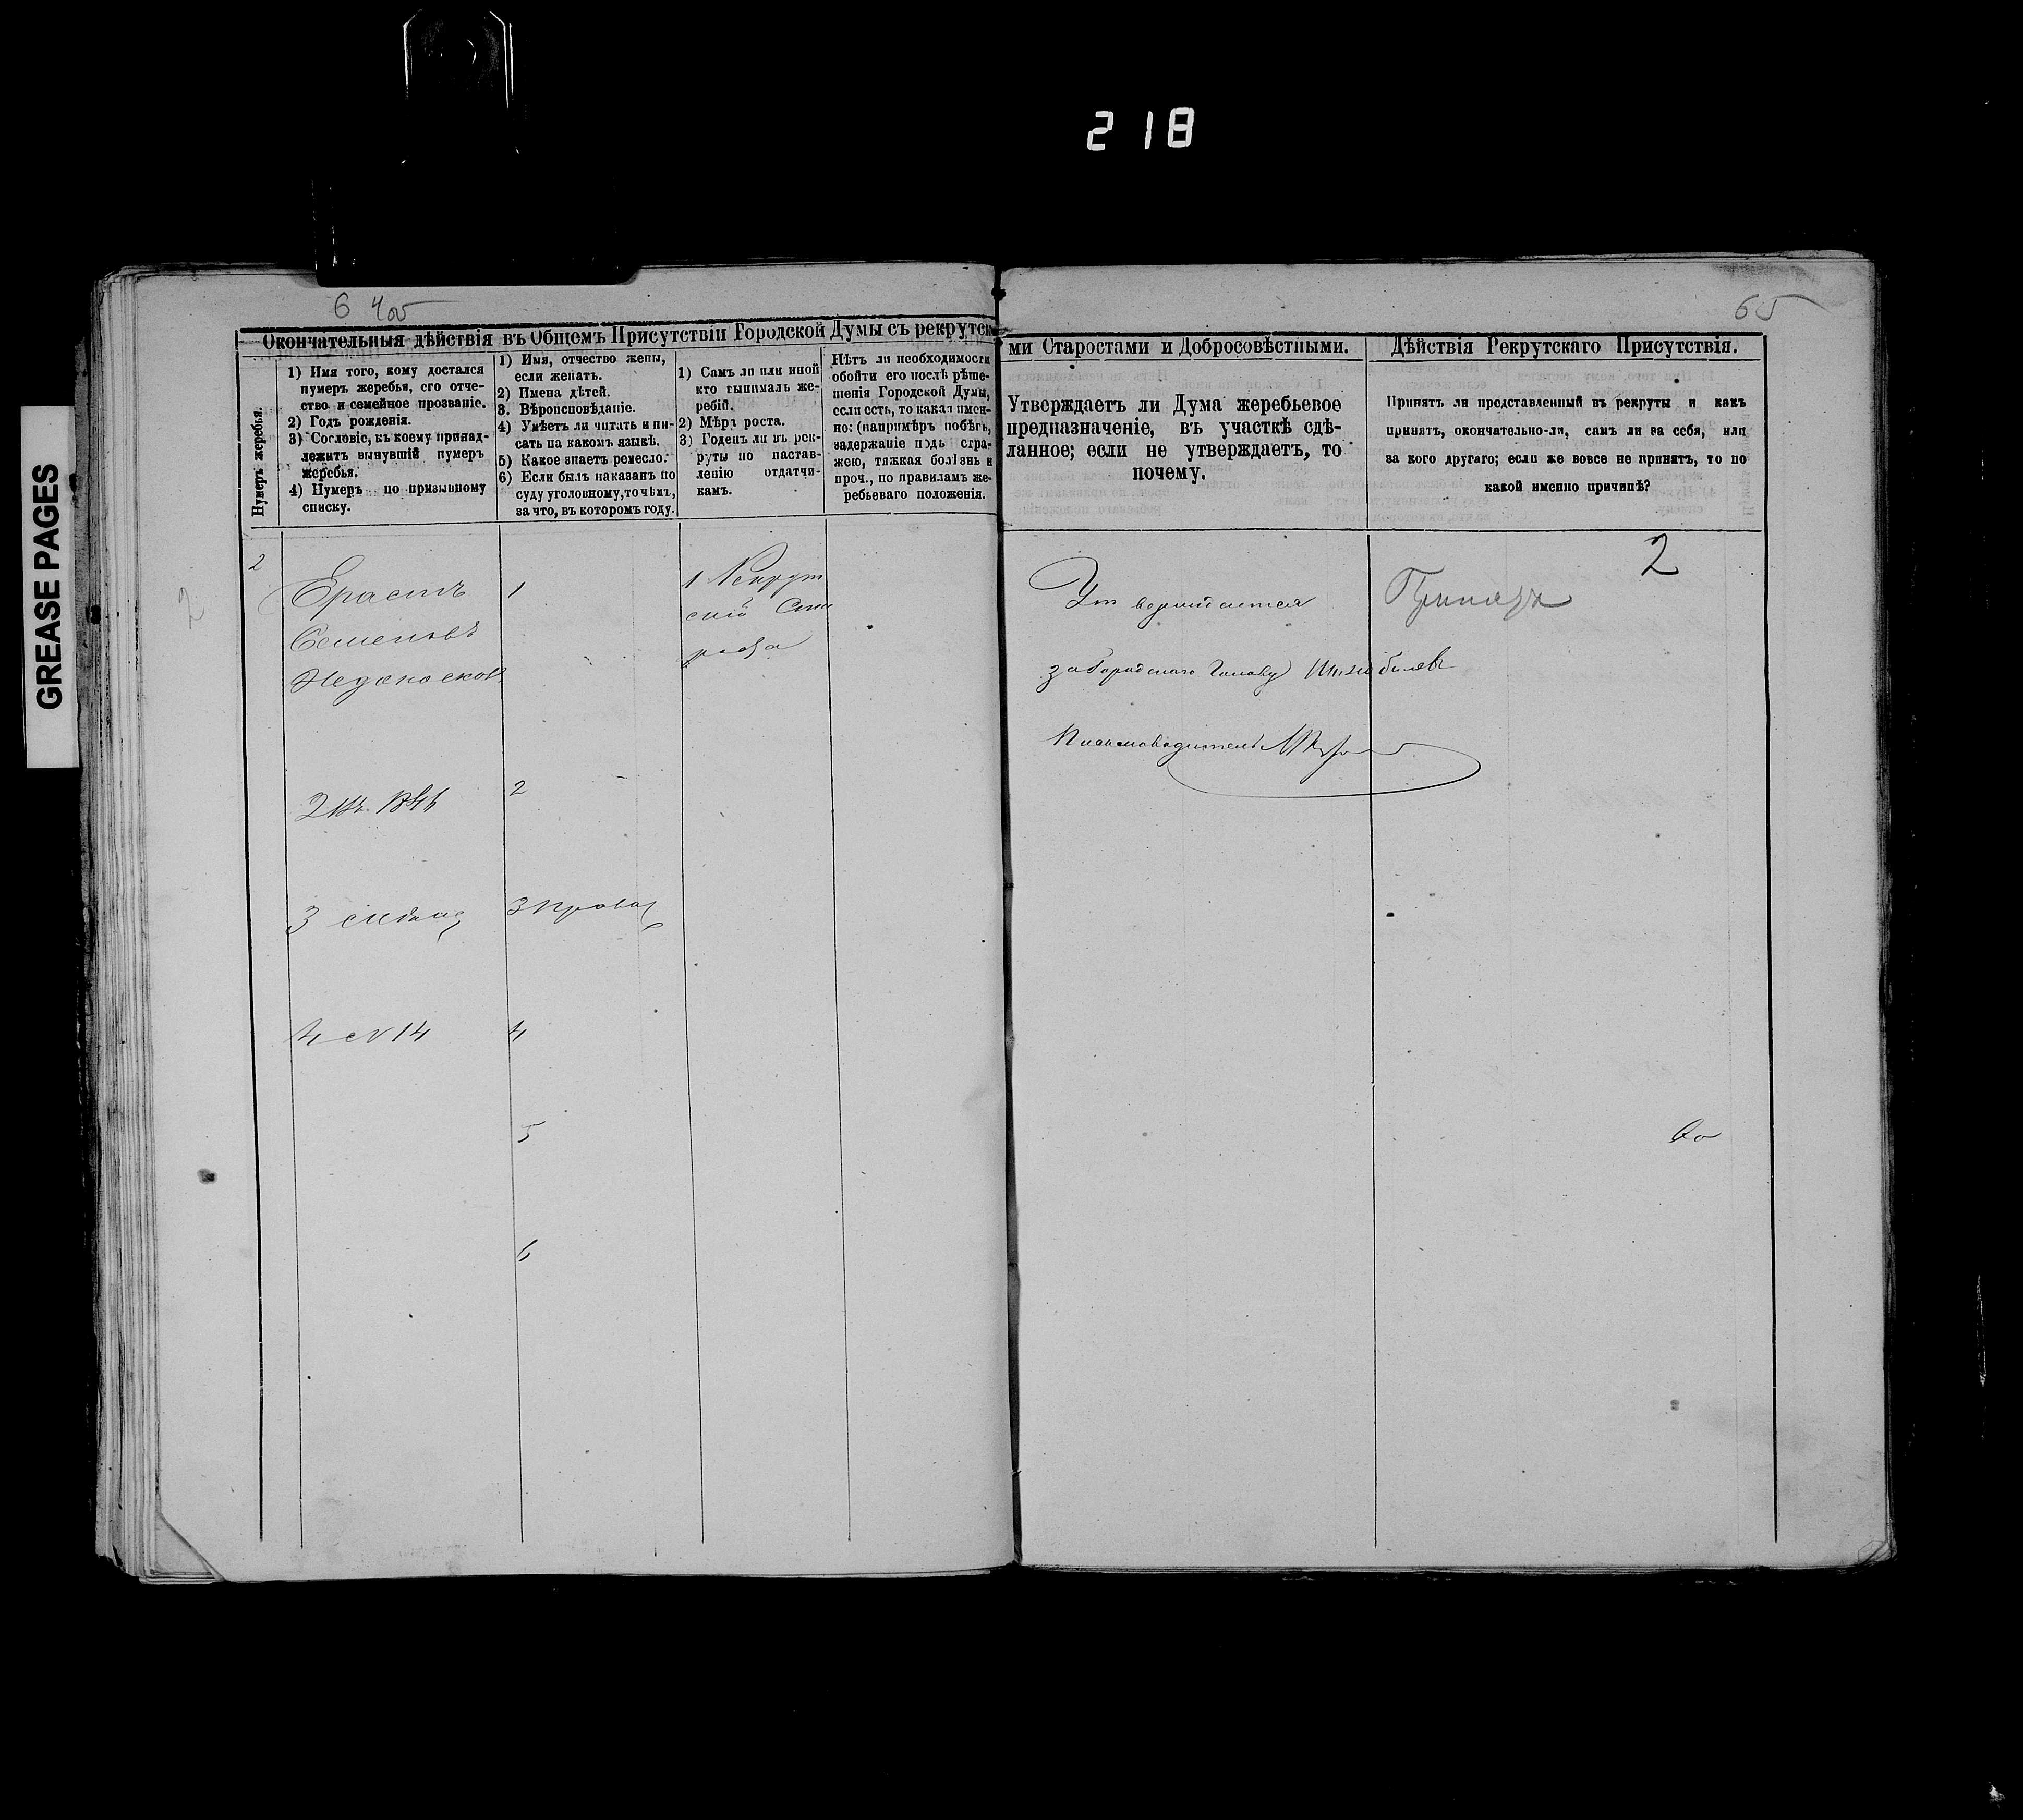 218
GREASE PAGES
65
Окончательныя дѣйствія въ Общемъ Присутствіи Городской Думы съ рекрутски
ми Старостами и Добросовѣстными.
Дѣйствія Рекрутскаго Присутствія.
Нумеръ жеребья.
1) Имя того, кому достался
нумеръ жеребья, его отче-
ство и семейное прозваніе.
2) Годъ рожденія.
3) Сословіе, къ коему принад-
лежитъ вынувшій нумеръ
жеребья.
4) Нумеръ по призывному
списку.
1) Имя, отчество жены,
если женатъ.
2) Имена дѣтей.
3. Вѣроисповѣданіе.
4) Умѣетъ ли читать и пи-
сать на какомъ языкѣ.
5) Какое знаетъ ремесло.
6) Если былъ наказанъ по
суду уголовному, то чѣмъ,
за что, въ которомъ году.
1) Самъ ли или иной
кто вынималъ же-
ребій.
2) Мѣра роста.
3) Годенъ ли въ рек-
руты по настав-
ленію отдатчи-
камъ.
Нѣтъ ли необходимости
обойти его послѣ рѣше-
шенія Городской Думы,
если есть, то какая имен-
но: (напримѣръ побѣгъ,
задержаніе подъ стра-
жею, тяжкая болѣзнь и
проч., по правиламъ же-
ребьеваго положенія.
Утверждаетъ ли Дума жеребьевое
предназначеніе, въ участкѣ сдѣ-
ланное; если не утверждаетъ, то
почему.
Принятъ ли представленный въ рекруты и какъ
принятъ, окончательно-ли, самъ ли за себя, или
за кого другаго; если же вовсе не принятъ, то по
какой именно причинѣ?
2
Ерастъ
Семеновъ
2
3
4 № 14
1
2
3 Правос
4
5
6
1 Рекрут
скій Ста
роста
Утверждается
за Городскаго Голову
Письмоводитель
2
2